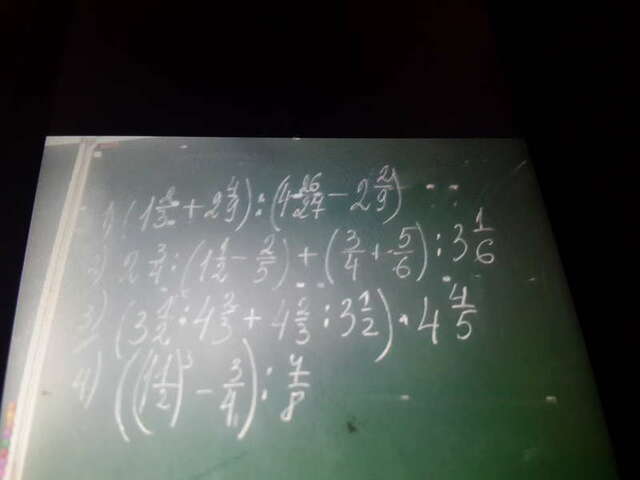 1) (1 2/3 + 2 4/9) : (4 26/27 - 2 2/9)
2) 2 3/4 : (1 1/2 - 2/5) + (3/4 + 5/6) : 3 1/6
3) (3 1/2 : 4 2/3 + 4 2/3 : 3 1/2) · 4 4/5
4) ((1 1/2)³ - 3/4) : 7/8